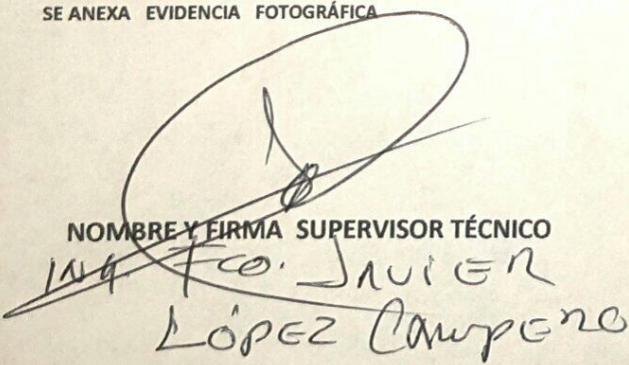 SE ANEXA EVIDENCIA FOTOGRÁFICA
NOMBRE Y FIRMA SUPERVISOR TÉCNICO
ING. FCO. JAVIER
LÓPEZ CAMPERO